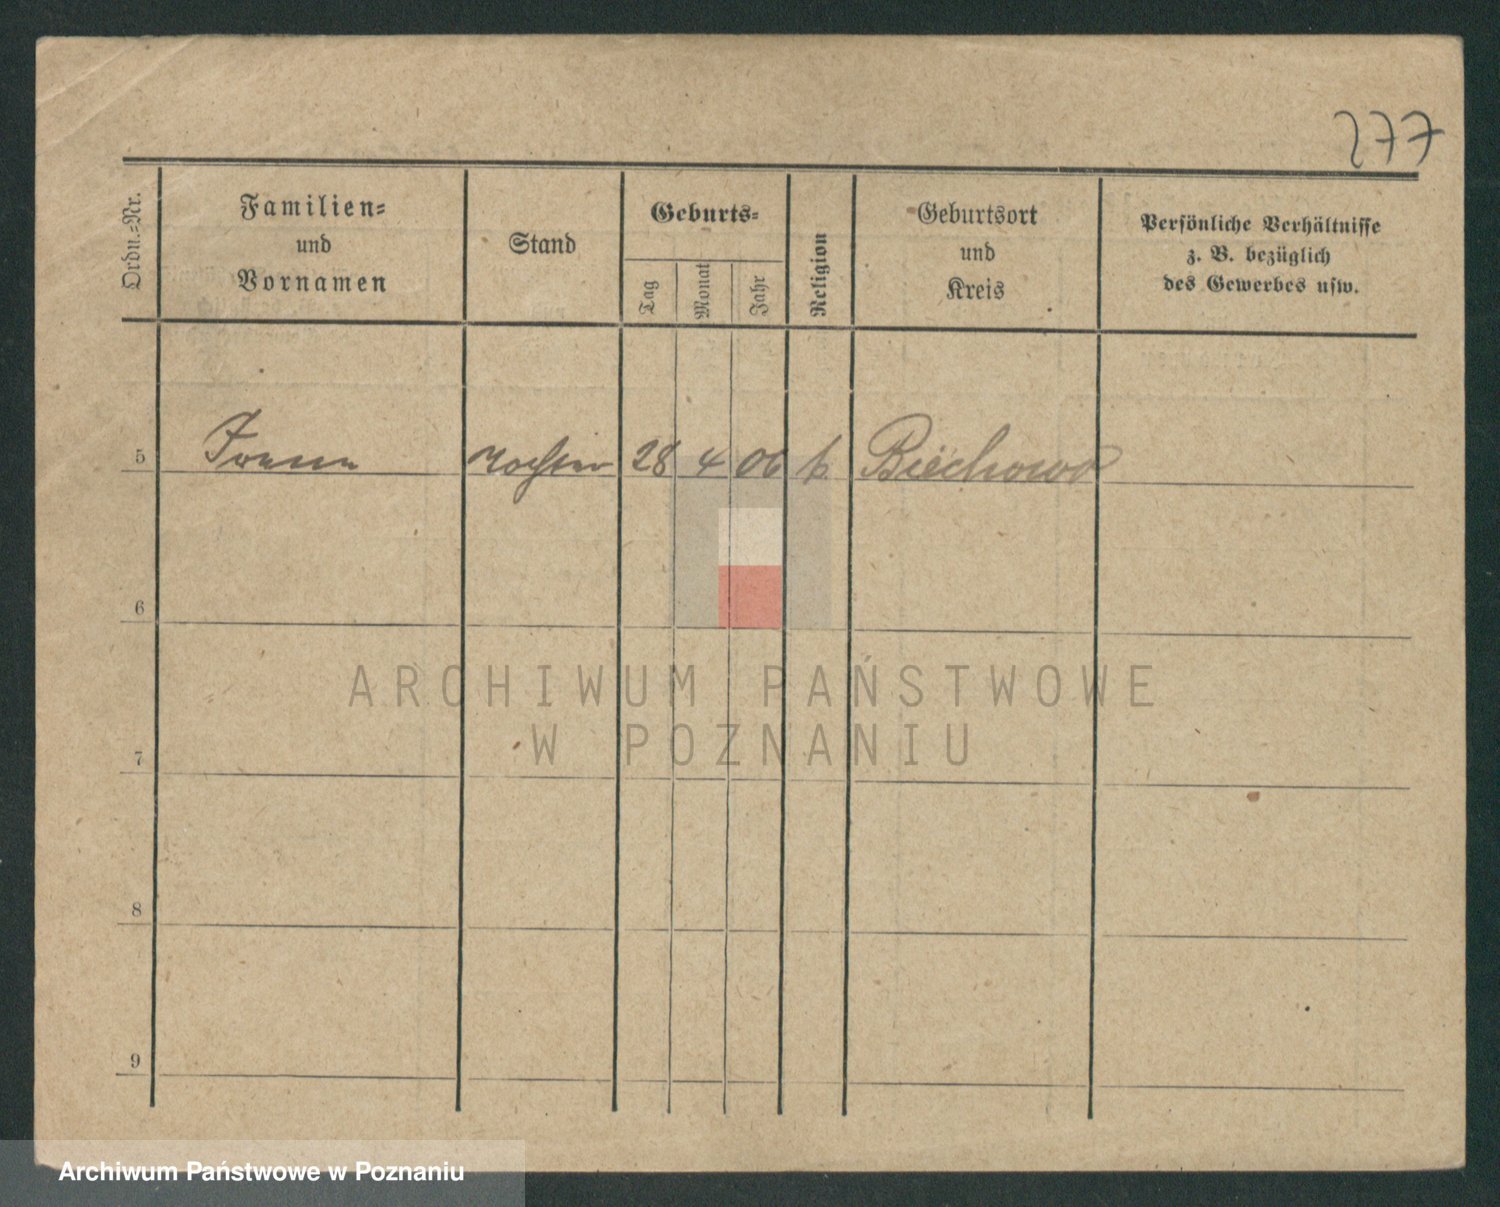 277
Ordn.-Nr.
Familien-
und
Vornamen
Stand
Geburts-
Tag
Monat
Jahr
Religion
Geburtsort
und
Kreis
Persönliche Verhältnisse
z. B. bezüglich
des Gewerbes usw.
5 Irena Tochter 28 4 06 k. Biechowo
6
7
8
9
ARCHIWUM PAŃSTWOWE
W POZNANIU
Archiwum Państwowe w Poznaniu